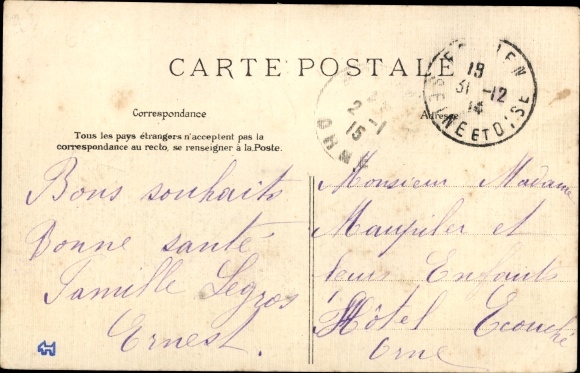 CARTE POSTALE
Correspondance
Adresse
Tous les pays étrangers n'acceptent pas la
correspondance au recto, se renseigner à la Poste.
18
31 -12
14
SEINE ET OISE
2 -1
15
ORNE
Bons souhaits
Bonne santé
Famille Legros
Ernest.
Monsieur Madame
Maupiler et
leurs Enfants
Hôtel Ecouché
Orne